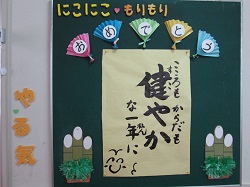 にこにこ♥もりもり
おめでとう
こころも からだも
健やか
すこ
な一年に
やる気